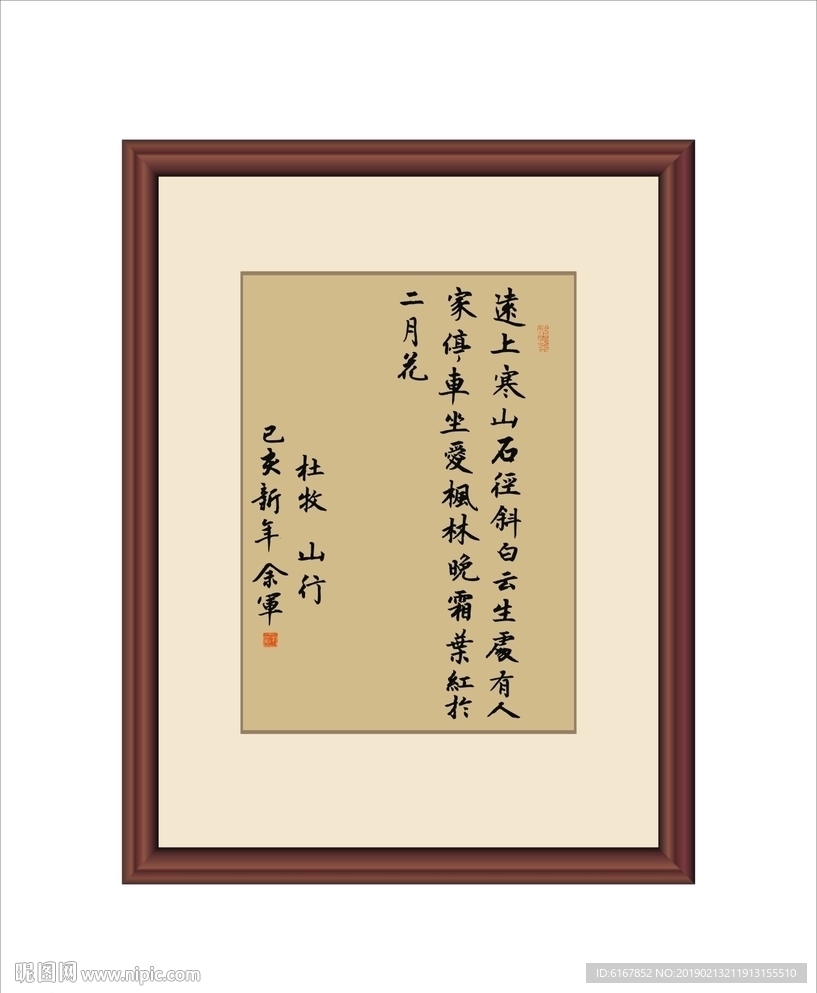 遠上寒山石徑斜白云生處有人
家停車坐愛楓林晚霜葉紅於
二月花
杜牧 山行
己亥新年 余軍
昵图网 www.nipic.com
ID:6167852 NO:20190213211913155510